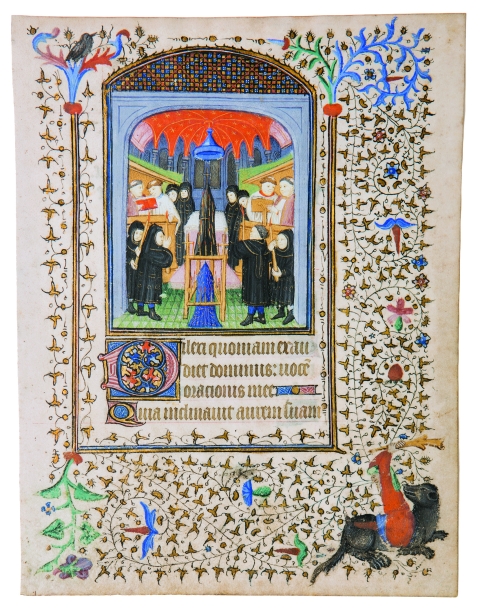 Dilexi quoniam exau
diet dominus: uocē
oracionis mee
Quia inclinauit aurem suam